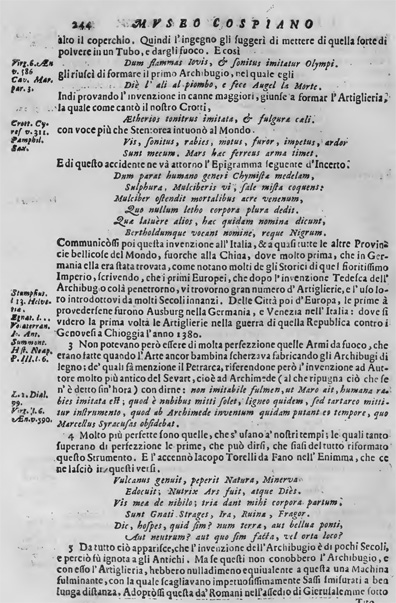 244 MVSEO COSPIANO
alto il coperchio. Quindi l'ingegno gli suggerì di mettere di quella sorte di
polvere in un Tubo, e dargli fuoco. E così
Virg. 6. Æn
v. 586
Dum flammas Iovis, & sonitus imitatur Olympi.
Cav. Mar.
par. 3.
gli riuscì di formare il primo Archibugio, nel quale egli
Diè l'ali al piombo, e fece Augel la Morte.
Indi provando l'invenzione in canne maggiori, giunse a formar l'Artiglieria,
la quale come cantò il nostro Crotti,
Ætherios tonitrus imitata, & fulgura cæli.
Crott. Cy-
v. 311.
con voce più che Stentorea intuonò al Mondo.
Pamphil.
Sax.
Vis, sonitus, rabies, motus, furor, impetus, ardor
Sunt mecum. Mars hæc ferreus arma timet.
E di questo accidente ne và attorno l'Epigramma seguente d'Incerto.
Dum parat humano generi Chymista medelam,
Sulphura, Mulciberis vi, sale mista coquens:
Mulciber ostendit mortalibus acre venenum,
Quo nullum letho corpora plura dedit.
Quæ latuere alios, hæc quidam nomina dicunt,
Bertholdumque vocant nomine, reque Nigrum.
Communicossi poi questa invenzione all'Italia, & a quasi tutte le altre Provin
cie bellicose del Mondo, fuorche alla China, dove molto prima, che in Ger-
mania ella era stata trovata, come notano molti de gli Storici di quel fioritissimo
Imperio, scrivendo, che i primi Europei, che dopo l'invenzione Tedesca dell'
Archibugo colà penetrorno, vi trovorno gran numero d'Artiglierie, e l'uso lo-
ro introdottovi da molti Secoli innanzi. Delle Città poi d'Europa, le prime à
provedersene furono Ausburg nella Germania, e Venezia nell'Italia: dove si
videro la prima volta le Artiglierie nella guerra di quella Republica contro i
Genovesi a Chioggia l'anno 1380.
3 Non potevano però essere di molta perfezione quelle Armi da fuoco, che
erano fatte quando l'Arte ancor bambina scherzava fabricando gli Archibugi di
legno: de' quali fà menzione il Petrarca, riferendone però l'invenzione ad Au-
tore molto più antico del Sevart, cioè ad Archimede (al che ripugna ciò che se
n'è detto sin'hora) con dirne: non imitabile fulmen, ut Maro ait, humana ra-
L. 1. Dial.
99.
bies imitata est, quod è nubibus mitti solet, ligneo quidem, sed tartareo mitti-
Virg. l. 6.
Æn. v. 590.
tur instrumento, quod ab Archimede inventum quidam putant eo tempore, quo
Marcellus Syracusas obsidebat.
4 Molto più perfette sono quelle, che s'usano a' nostri tempi: le quali tanto
superano di perfezione le prime, che può dirsi, che siasi del tutto riformato
questo Strumento. E l'accennò Iacopo Torelli da Fano nell'Enimma, che ce
ne lasciò in questi versi.
Vulcanus genuit, peperit Natura, Minerva
Edocuit; Nutrix Ars fuit, atque Dies.
Vis mea de nihilo; tria dant mihi corpora partum;
Sunt Gnati Strages, Ira, Ruina, Fragor.
Dic, hospes, quid sim? num terræ, aut bellua ponti,
Aut neutrum? aut quo sim facta, vel orta loco?
5 Da tutto ciò apparisce, che l'invenzione dell'Archibugio è di pochi Secoli,
e perciò fù ignota a gli Antichi. Ma se questi non conobbero l'Archibugio, e
con esso l'Artiglieria, hebbero nulladimeno equivalente a questa una Machina
fulminante, con la quale scagliavano impetuosissimamente Sassi smisurati a ben
lunga distanza. Adoprossi questa da' Romani nell'assedio di Gierusalemme sotto